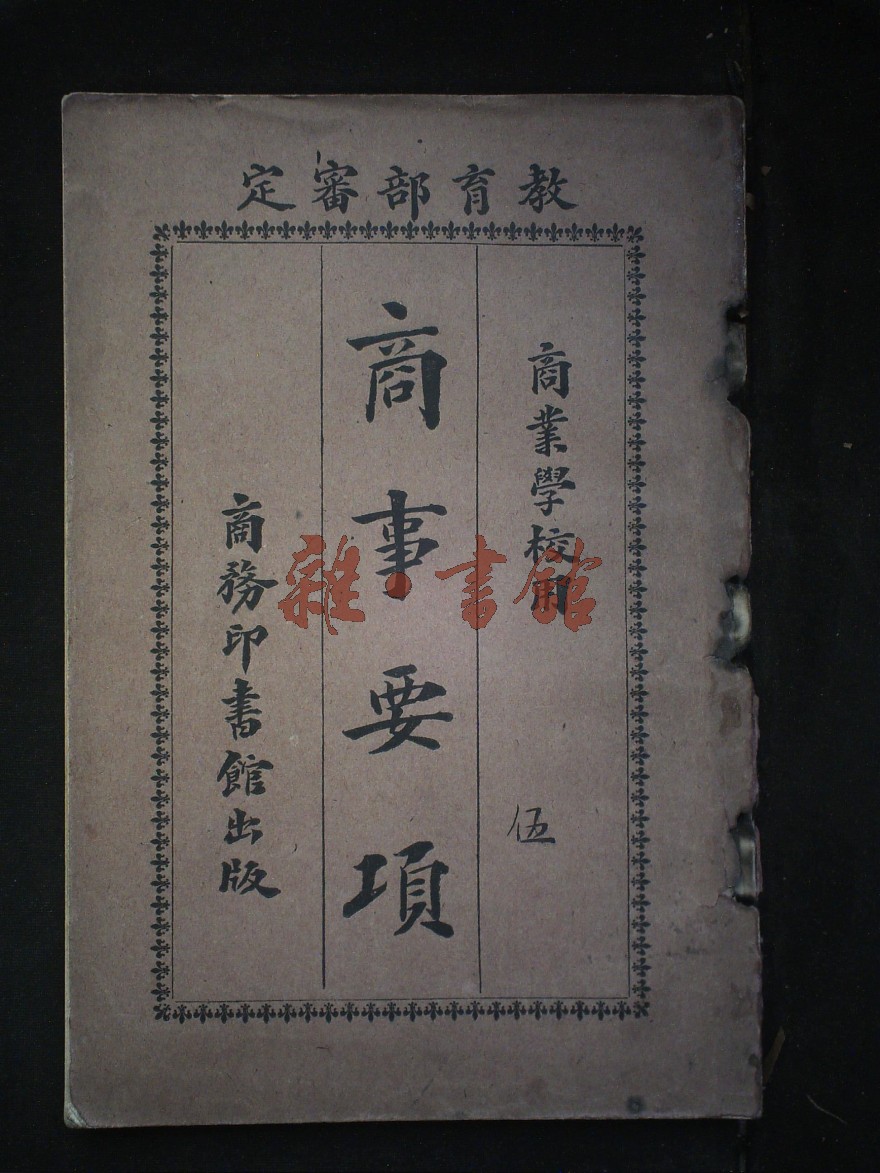 教育部審定
商業學校用
伍
商事要項
商務印書館出版
雜·書館